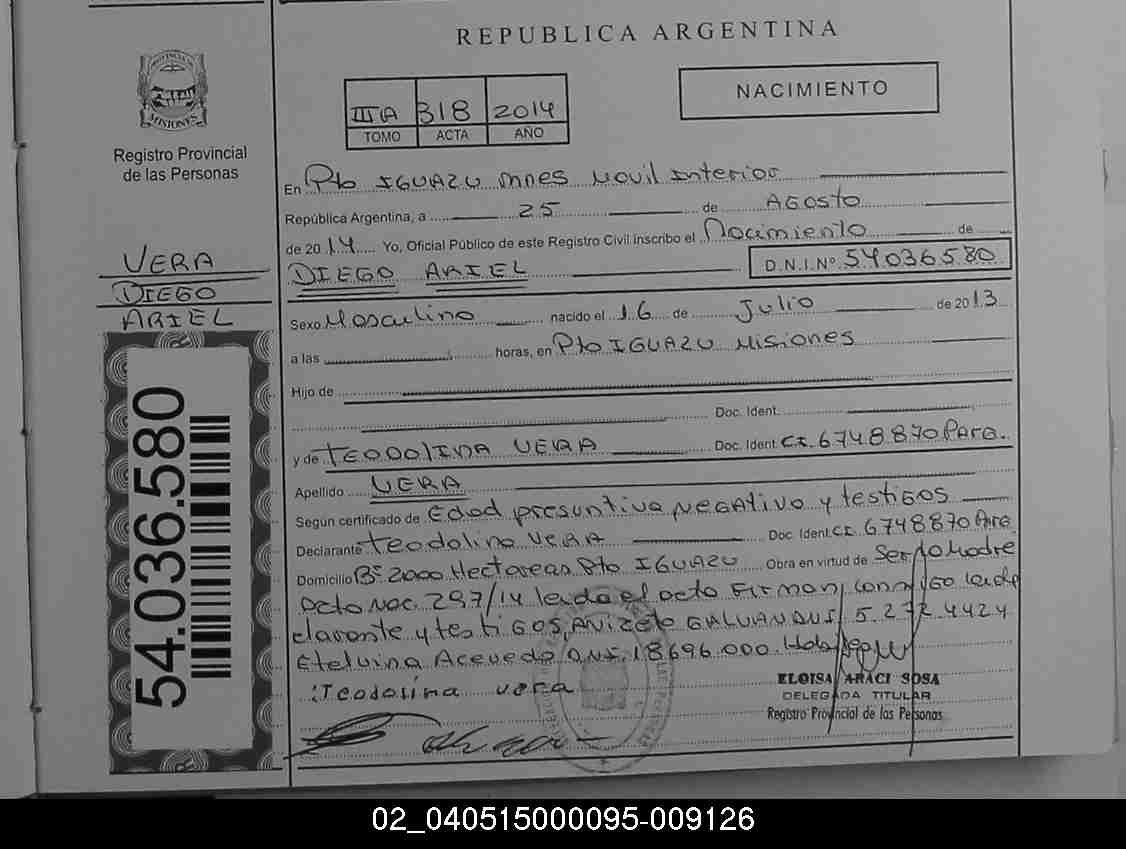 REPUBLICA ARGENTINA
PROVINCIA DE
MISIONES
Registro Provincial
de las Personas
IIIA 318 2014
TOMO ACTA AÑO
NACIMIENTO
En Pto IGUAZU Mnes Movil Interior
República Argentina, a 25 de AGosto
de 2014 Yo, Oficial Público de este Registro Civil inscribo el Nacimiento de
DIEGO ARIEL D.N.I.Nº 54036580
VERA
DIEGO
ARIEL
Sexo Masculino nacido el 16 de Julio de 2013
a las horas, en Pto IGUAZU Misiones
Hijo de
Doc. Ident.
y de TEODOLINA VERA Doc. Ident. CI. 6748870 Para.
Apellido VERA
54.036.580
Según certificado de Edad presuntiva NEGAtivo y testiGOS
Declarante Teodolina VERA Doc. Ident. CI. 6748870 Para
Domicilio Bº 2000 Hectareas Pto IGUAZU Obra en virtud de Ser la Madre
Acto Nac. 297/14 leida el acto Firman conmiGo la de
clarante y testiGOS, 5.272.4424
Etelvina Acevedo DNI. 18696.000.
Teodolina vera
ELOISA ARACI SOSA
DELEGADA TITULAR
Registro Provincial de las Personas
02_040515000095-009126